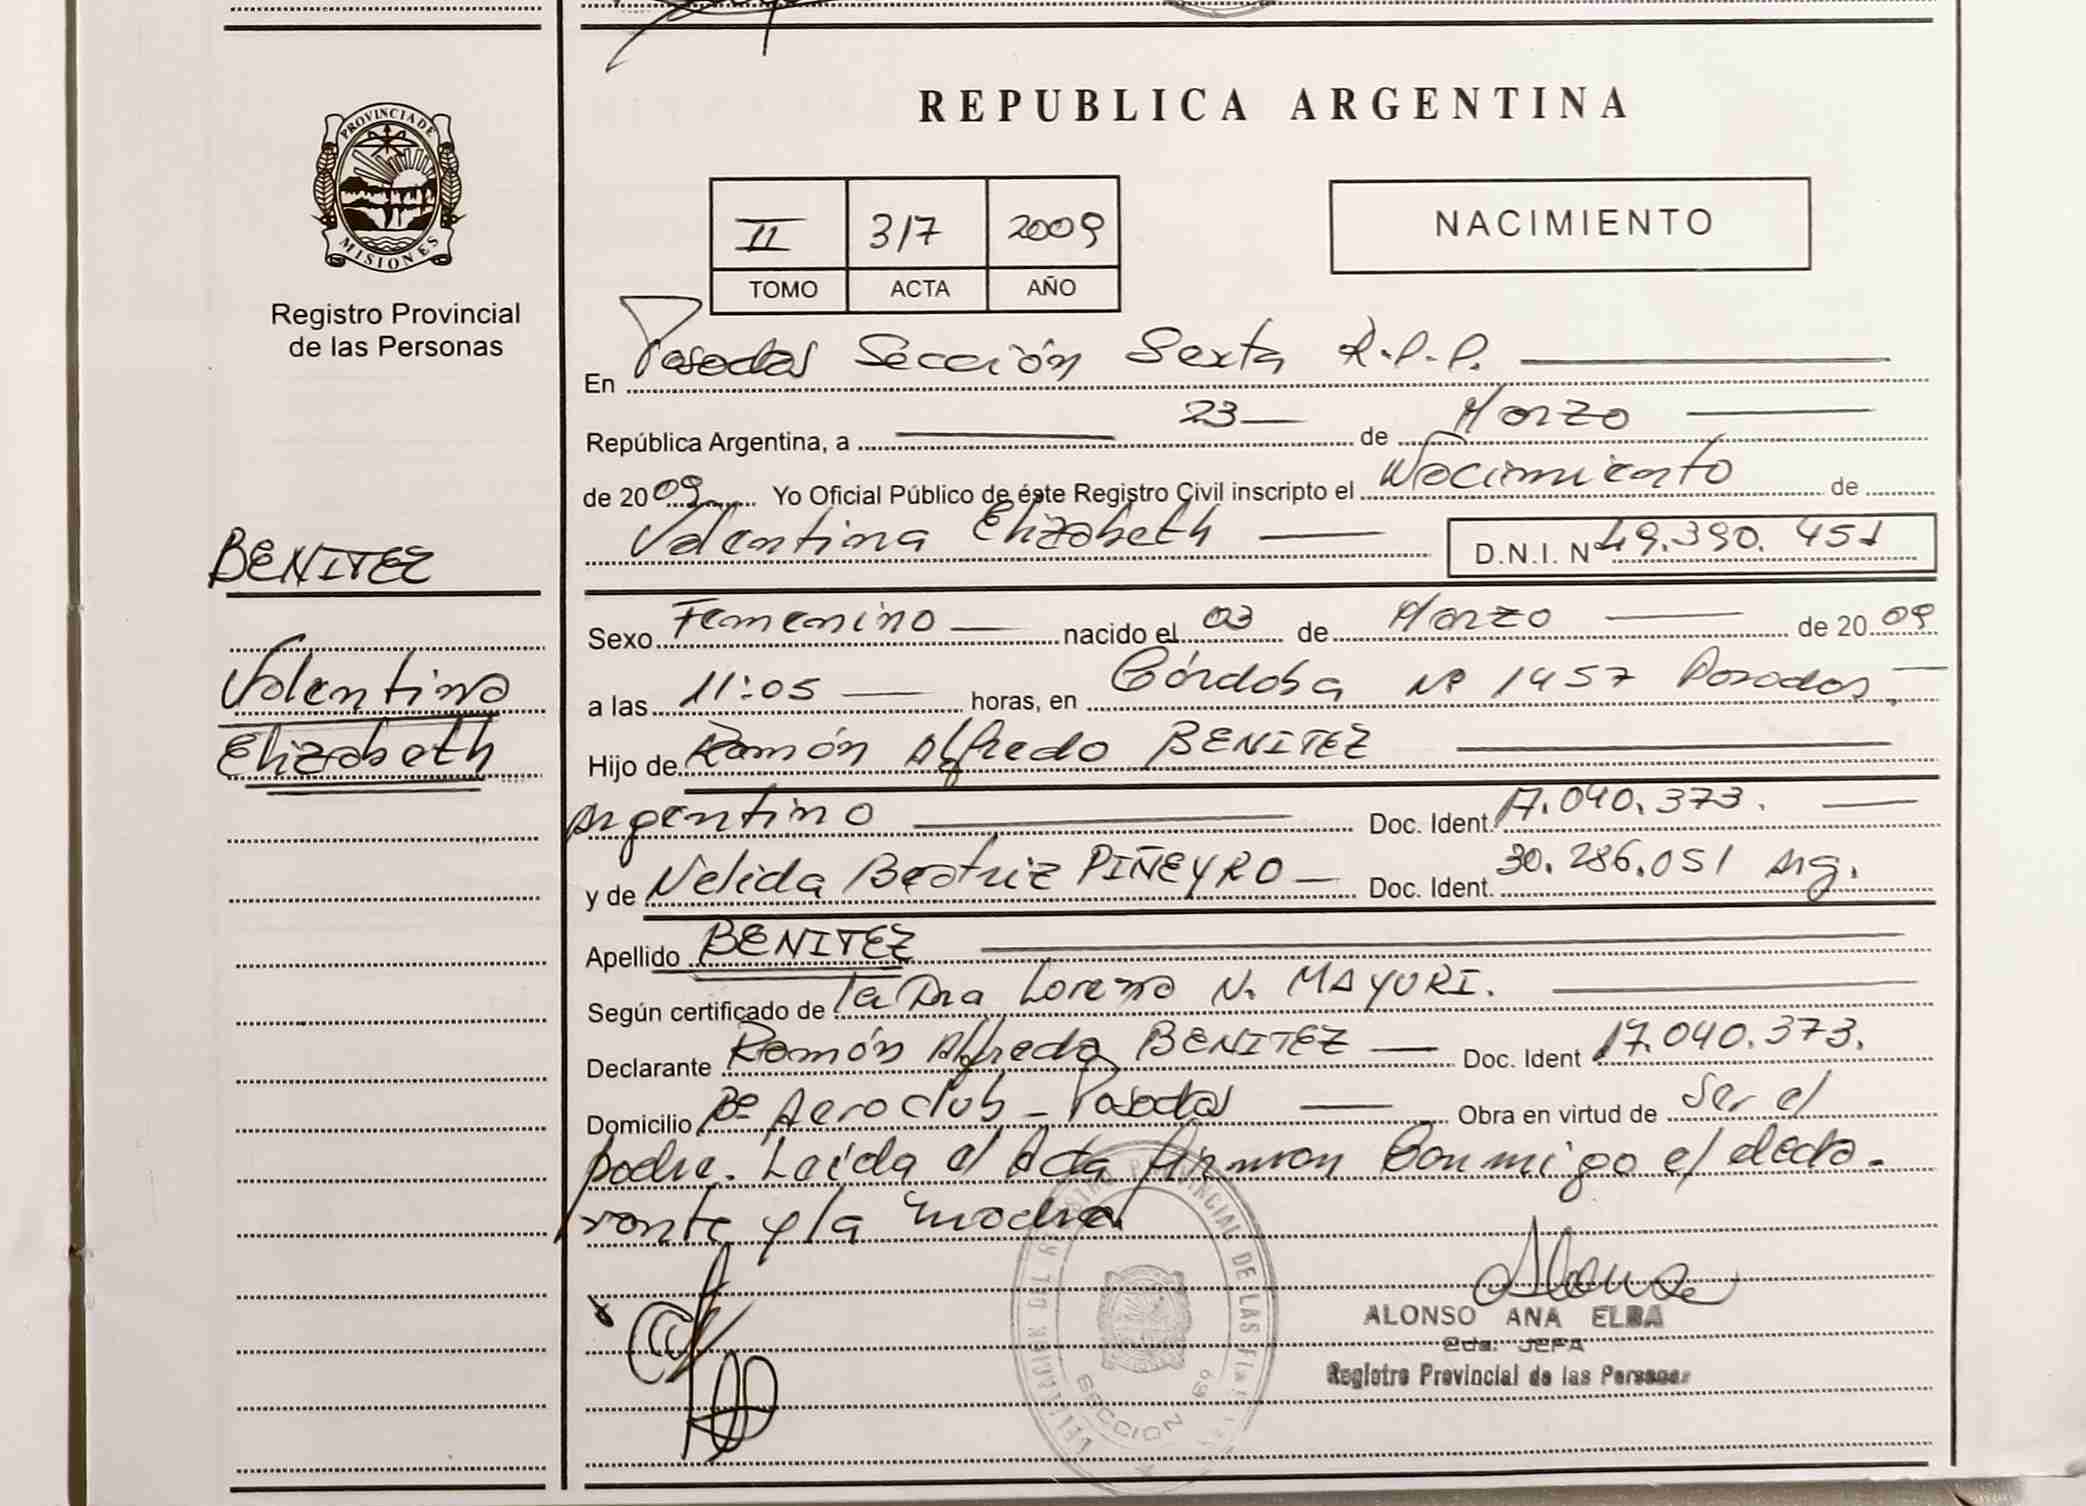 REPUBLICA ARGENTINA
PROVINCIA DE
MISIONES
Registro Provincial
de las Personas
II 317 2009
TOMO ACTA AÑO
NACIMIENTO
En Posadas Sección Sexta R.P.P.
República Argentina, a 23 de Marzo
de 2009 Yo Oficial Público de éste Registro Civil inscripto el Nacimiento de
Valentina Elizabeth D.N.I. Nº 49.390.451
BENITEZ
Valentina
Elizabeth
Sexo Femenino nacido el 03 de Marzo de 2009
a las 11:05 horas, en Córdoba Nº 1457 Posadas.
Hijo de Ramón Alfredo BENITEZ
Argentino Doc. Ident. 17.040.373.
y de Nelida Beatriz PIÑEYRO Doc. Ident. 30.286.051 Arg.
Apellido BENITEZ
Según certificado de la Dra Lorena N. MAYURI.
Declarante Ramón Alfredo BENITEZ Doc. Ident 17.040.373.
Domicilio Bº Aeroclub - Posadas Obra en virtud de Ser el
padre. Leída el Acta firman Conmigo el decla-
rante y la madre
ALONSO ANA ELBA
2da. JEFA
Registro Provincial de las Personas
PROVINCIAL DE LAS
SECCION 6º